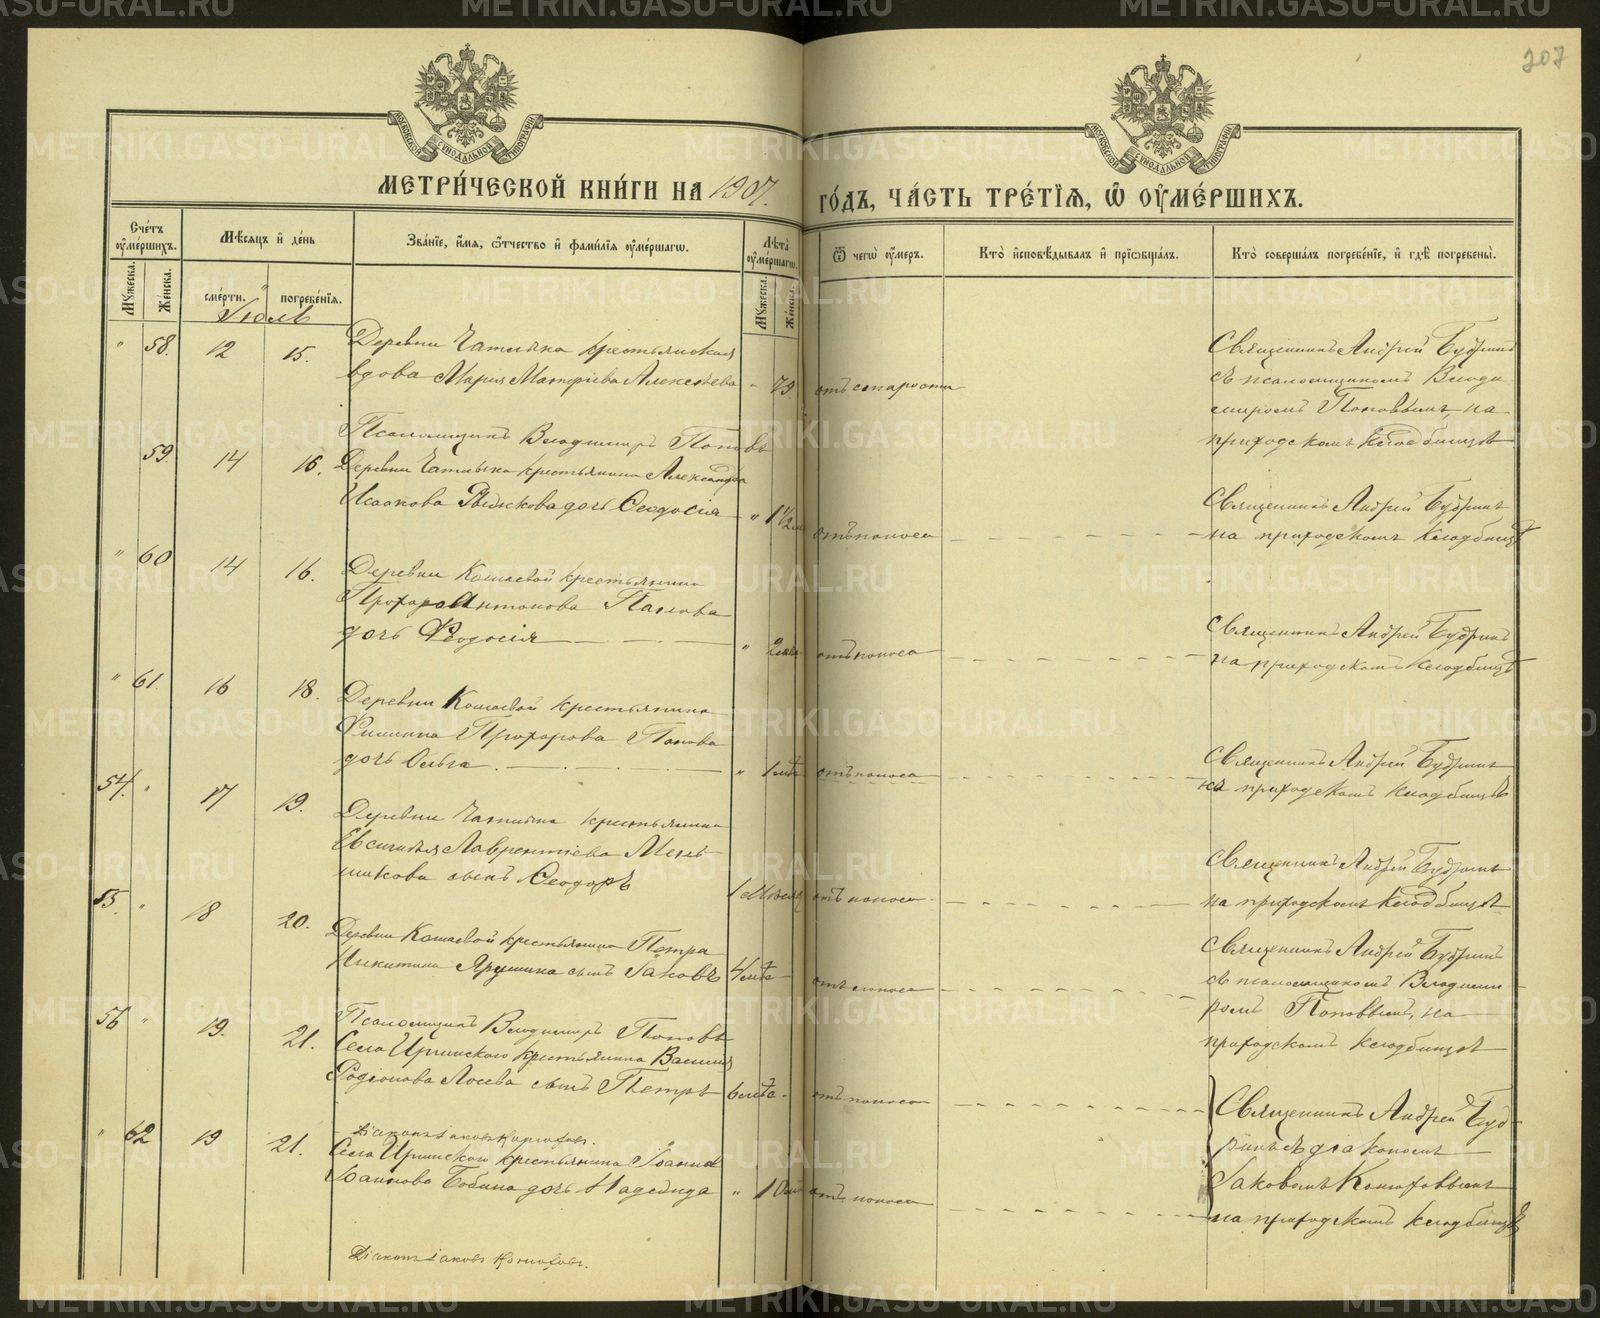 207
МОСКОВСКОЙ СѴНОДАЛЬНОЙ ТИПОГРАФІИ
МОСКОВСКОЙ СѴНОДАЛЬНОЙ ТИПОГРАФІИ
МЕТРИ́ЧЕСКОЙ КНИ́ГИ НА 1907.
ГО́ДЪ, ЧА́СТЬ ТРЕ́ТІѦ, Ѿ ОУМЕ́РШИХЪ.
Сче́тъ оуме́ршихъ.
Мѣ́сяцъ и де́нь
Зва́ніе, и́мя, ѻ́тчество и фами́лія оуме́ршагѡ.
Лѣ́та оуме́ршагѡ.
Ѿ чегѡ̀ оу́меръ.
Кто̀ исповѣ́дывалъ и пріѡбща́лъ.
Кто̀ соверша́лъ погребе́ніе, и гдѣ̀ погребены̀.
Му́жеска.
Же́нска.
сме́рти.
погребе́нія.
Му́жеска.
Же́нска.
Іюль
" 58. 12 15. Деревни Чатлыка крестьянская
вдова Марія Матѳіева Алексѣева " 79 отъ старости
Священникъ Андрей Будринъ
съ псаломщикомъ Влади
миромъ Поповымъ, на
приходскомъ кладбищѣ
Псаломщикъ Владимиръ Поповъ
59. 14 16. Деревни Чатлыка крестьянина Александра
Исаакова дочь Ѳеодосія " 1 1/2 отъ поноса
Священникъ Андрей Будринъ
на приходскомъ кладбищѣ
" 60 14 16. Деревни Кошаевой крестьянина
Прохора Антонова Попова
дочь Ѳеодосія " 2 отъ поноса
Священникъ Андрей Будринъ
на приходскомъ кладбищѣ
" 61. 16 18. Деревни Кошаевой крестьянина
Филиппа Прохорова Попова
дочь Ольга " 1 отъ поноса
Священникъ Андрей Будринъ
на приходскомъ кладбищѣ
54. " 17 19. Деревни Чатлыка крестьянина
Евсигнія Лаврентіева Мень
шикова сынъ Ѳеодоръ 1 мѣсяц отъ поноса
Священникъ Андрей Будринъ
на приходскомъ кладбищѣ
55. " 18 20. Деревни Кошаевой крестьянина Петра
Никитина Ярушина сынъ Іаковъ 4 лѣтъ отъ поноса
Священникъ Андрей Будринъ
съ псаломщикомъ Владими
ромъ Поповымъ, на
приходскомъ кладбищѣ
Псаломщикъ Владимиръ Поповъ
56 " 19. 21. Села Иргинского крестьянина Василія
Родіонова Лосева сынъ Петръ 6 лѣтъ отъ поноса
Священникъ Андрей Буд-
ринъ съ діакономъ
Іаковомъ Конюховымъ
на приходскомъ кладбищѣ
Діаконъ Іаковъ Конюховъ.
" 62 19 21. Села Иргинского крестьянина Іоанна
Іоаннова Бобина дочь Надежда " 10 отъ поноса
Діаконъ Іаковъ Конюховъ.
METRIKI.GASO-URAL.RU